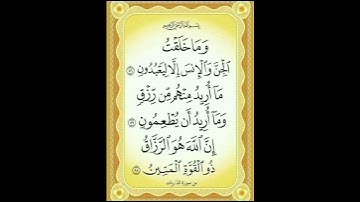 بسم الله الرحمن الرحيم
وَمَا خَلَقْتُ
الْجِنَّ وَالْإِنسَ إِلَّا لِيَعْبُدُونِ ٥٦
مَا أُرِيدُ مِنْهُم مِّن رِّزْقٍ
وَمَا أُرِيدُ أَن يُطْعِمُونِ ٥٧
إِنَّ اللَّهَ هُوَ الرَّزَّاقُ
ذُو الْقُوَّةِ الْمَتِينُ ٥٨
من سورة الذاريات